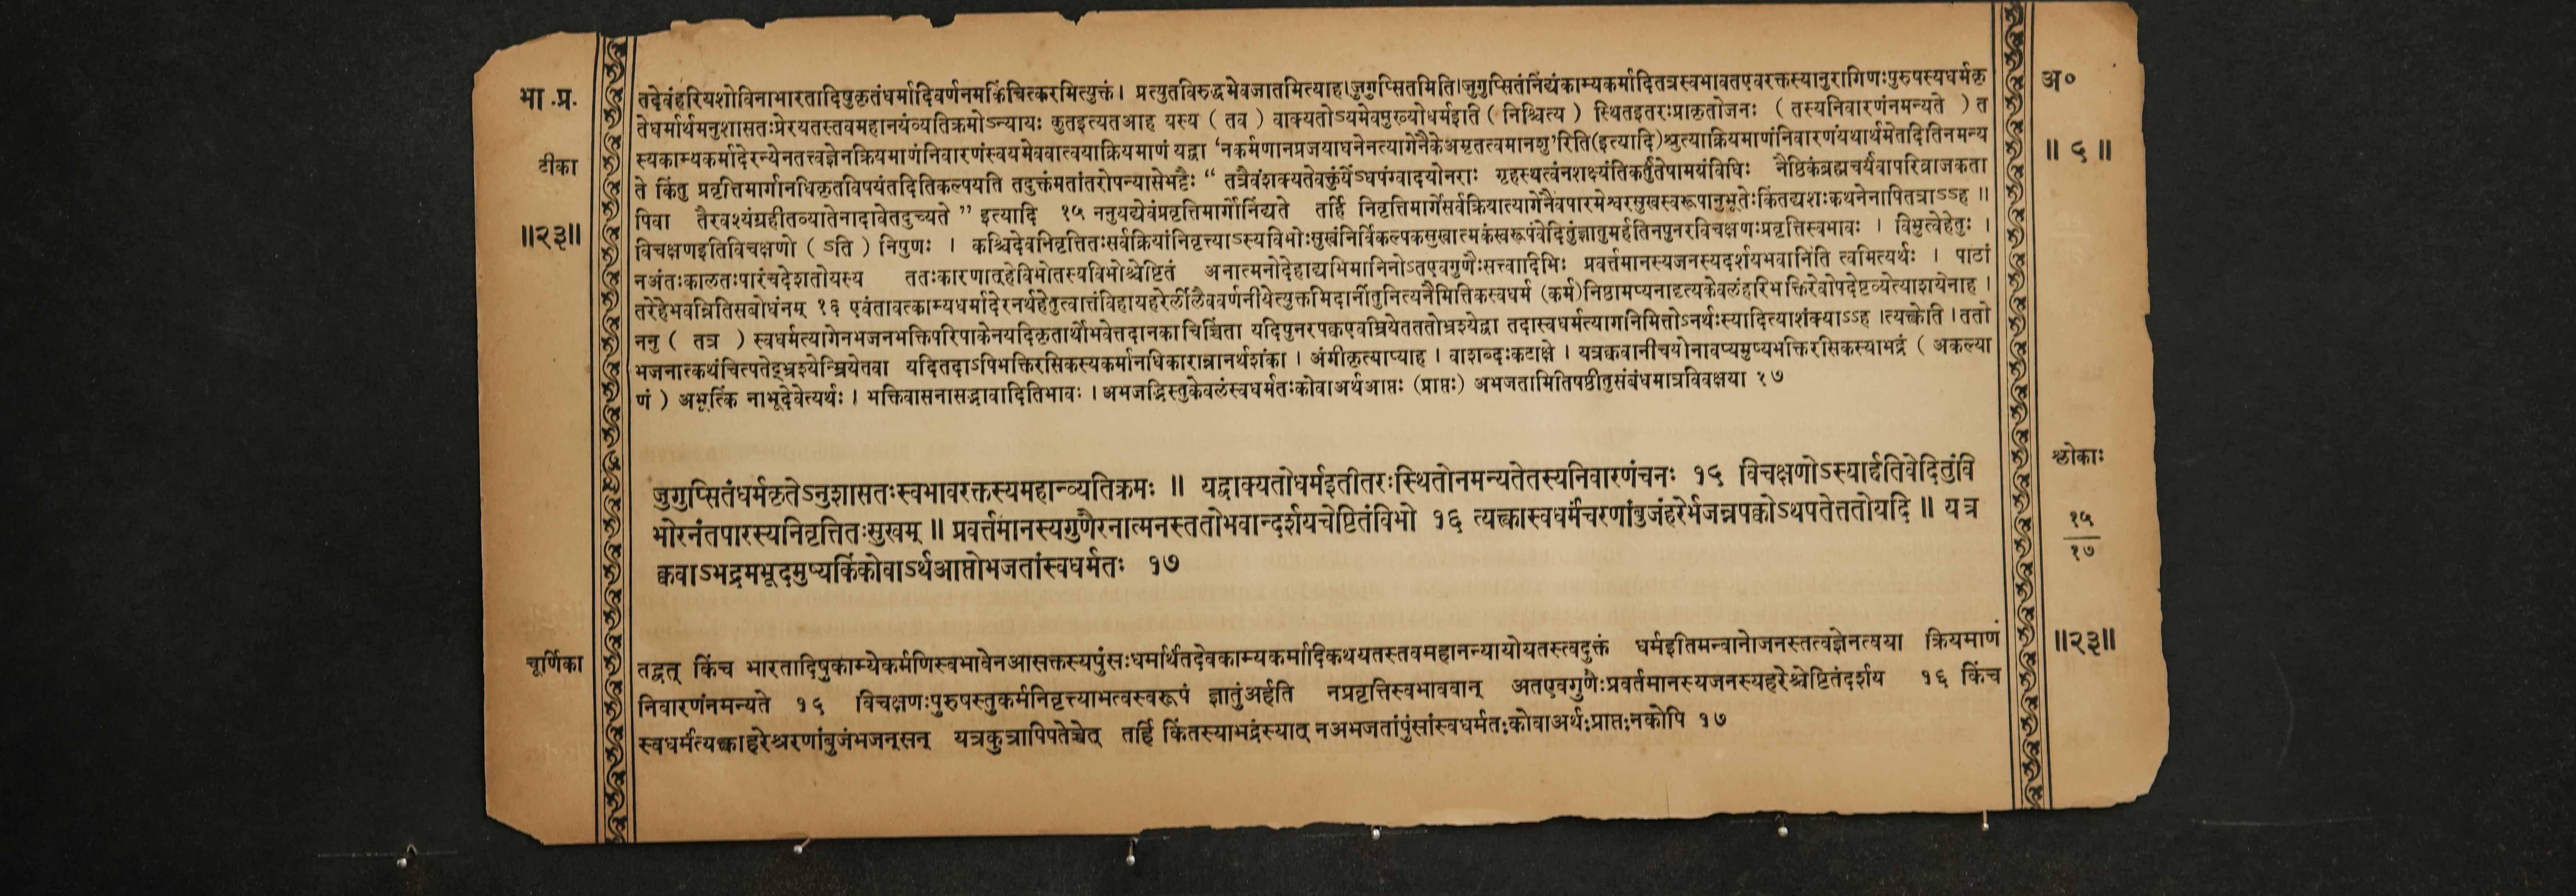 भा.प्र.
तदेवंहरियशोविनाभारतादिषुकृतंधर्मादिवर्णनमकिंचित्करमित्युक्तं। प्रत्युतविरुद्धमेवजातमित्याह।जुगुप्सितमिति।जुगुप्सितंनिंद्यंकाम्यकर्मादितत्रस्वभावतएवरक्तस्यानुरागिणःपुरुषस्यधर्मकृ
अ०
तेधर्मार्थमनुशासतःप्रेरयतस्तवमहानयंव्यतिक्रमोऽन्यायः कुतइत्यतआह यस्य ( तव ) वाक्यतोऽयमेवमुख्योधर्मइति ( निश्चित्य ) स्थितइतरःप्राकृतोजनः ( तस्यनिवारणंनमन्यते ) त
टीका
स्यकाम्यकर्मादेरन्येनतत्त्वज्ञेनक्रियमाणंनिवारणंस्वयमेववात्वयाक्रियमाणं यद्वा ‘नकर्मणानप्रजयाधनेनत्यागेनैकेअमृतत्वमानशु’रिति(इत्यादि)श्रुत्याक्रियमाणंनिवारणंयथार्थमेतदितिनमन्य
॥ ५ ॥
ते किंतु प्रवृत्तिमार्गानधिकृतविषयंतदितिकल्पयति तदुक्तंमतांतरोपन्यासेभट्टैः “ तत्रैवंशक्यतेवक्तुंयेंऽधपंग्वादयोनराः गृहस्थत्वंनशक्ष्यंतिकर्तुंतेषामयंविधिः नैष्ठिकंब्रह्मचर्यंवापरिव्राजकता
पिवा तैरवश्यंग्रहीतव्यातेनादावेतदुच्यते ” इत्यादि १५ ननुयद्येवंप्रवृत्तिमार्गोनिंद्यते तर्हि निवृत्तिमार्गेसर्वक्रियात्यागेनैवपारमेश्वरसुखस्वरूपानुभूतेःकिंतद्यशःकथनेनापितत्राऽऽह ॥
॥२३॥
विचक्षणइतिविचक्षणो ( ऽति ) निपुणः । कश्चिदेवनिवृत्तितःसर्वक्रियांनिवृत्त्याऽस्यविभोःसुखंनिर्विकल्पकसुखात्मकंस्वरूपंवेदितुंज्ञातुमर्हतिनपुनरविचक्षणःप्रवृत्तिस्वभावः । विभुत्वेहेतुः ।
नअंतःकालतःपारंचदेशतोयस्य ततःकारणात्‌हेविभोतस्यविभोश्चेष्टितं अनात्मनोदेहाद्यभिमानिनोऽतएवगुणैःसत्त्वादिभिः प्रवर्त्तमानस्यजनस्यदर्शयभवानिति त्वमित्यर्थः । पाठां
तरेहेभवन्नितिसंबोधनम् १६ एवंतावत्काम्यधर्मादेरनर्थहेतुत्वात्तंविहायहरेर्लीलैववर्णनीयेत्युक्तमिदानींतुनित्यनैमित्तिकस्वधर्म (कर्म)निष्ठामप्यनादृत्यकेवलंहरिभक्तिरेवोपदेष्टव्येत्याशयेनाह ।
ननु ( तत्र ) स्वधर्मत्यागेनभजनभक्तिपरिपाकेनयदिकृतार्थोभवेत्तदानकाचिच्चिंता यदिपुनरपक्वएवम्रियेतततोभ्रश्येद्वा तदास्वधर्मत्यागनिमित्तोऽनर्थःस्यादित्याशंक्याऽऽह ।त्यक्त्वेति । ततो
भजनात्कथंचित्पतेद्भ्रश्येन्म्रियेतवा यदितदाऽपिभक्तिरसिकस्यकर्मानधिकारान्नानर्थशंका । अंगीकृत्याप्याह । वाशब्दःकटाक्षे । यत्रक्ववानीचयोनावप्यमुष्यभक्तिरसिकस्याभद्रं ( अकल्या
णं ) अभूत्किं नाभूदेवेत्यर्थः । भक्तिवासनासद्भावादितिभावः । अभजद्भिस्तुकेवलंस्वधर्मतःकोवाअर्थआप्तः (प्राप्तः) अभजतामितिषष्ठीतुसंबंधमात्रविवक्षया १७
श्लोकाः
जुगुप्सितंधर्मकृतेऽनुशासतःस्वभावरक्तस्यमहान्व्यतिक्रमः ॥ यद्वाक्यतोधर्मइतीतरःस्थितोनमन्यतेतस्यनिवारणंचनः १५ विचक्षणोऽस्यार्हतिवेदितुंवि
भोरनंतपारस्यनिवृत्तितःसुखम् ॥ प्रवर्तमानस्यगुणैरनात्मनस्ततोभवान्दर्शयचेष्टितंविभो १६ त्यक्त्वास्वधर्मंचरणांबुजंहरेर्भजन्नपक्वोऽथपतेत्ततोयदि ॥ यत्र
१५
१७
क्ववाऽभद्रमभूदमुष्यकिंकोवाऽर्थआप्तोभजतांस्वधर्मतः १७
चूर्णिका
तद्वत् किंच भारतादिषुकाम्येकर्मणिस्वभावेनआसक्तस्यपुंसःधर्मार्थंतदेवकाम्यकर्मादिकथयतस्तवमहानन्यायोयतस्त्वदुक्तं धर्मइतिमन्वानोजनस्तत्वज्ञेनत्वया क्रियमाणं
॥२३॥
निवारणंनमन्यते १५ विचक्षणःपुरुषस्तुकर्मनिवृत्त्याभत्वस्वरूपं ज्ञातुंअर्हति नप्रवृत्तिस्वभाववान् अतएवगुणैःप्रवर्तमानस्यजनस्यहरेश्चेष्टितंदर्शय १६ किंच
स्वधर्मंत्यक्त्वाहरेश्चरणांबुजंभजन्‌सन् यत्रकुत्रापिपतेच्चेत् तर्हि किंतस्याभद्रंस्यात् नअभजतांपुंसांस्वधर्मतःकोवाअर्थःप्राप्तःनकोपि १७